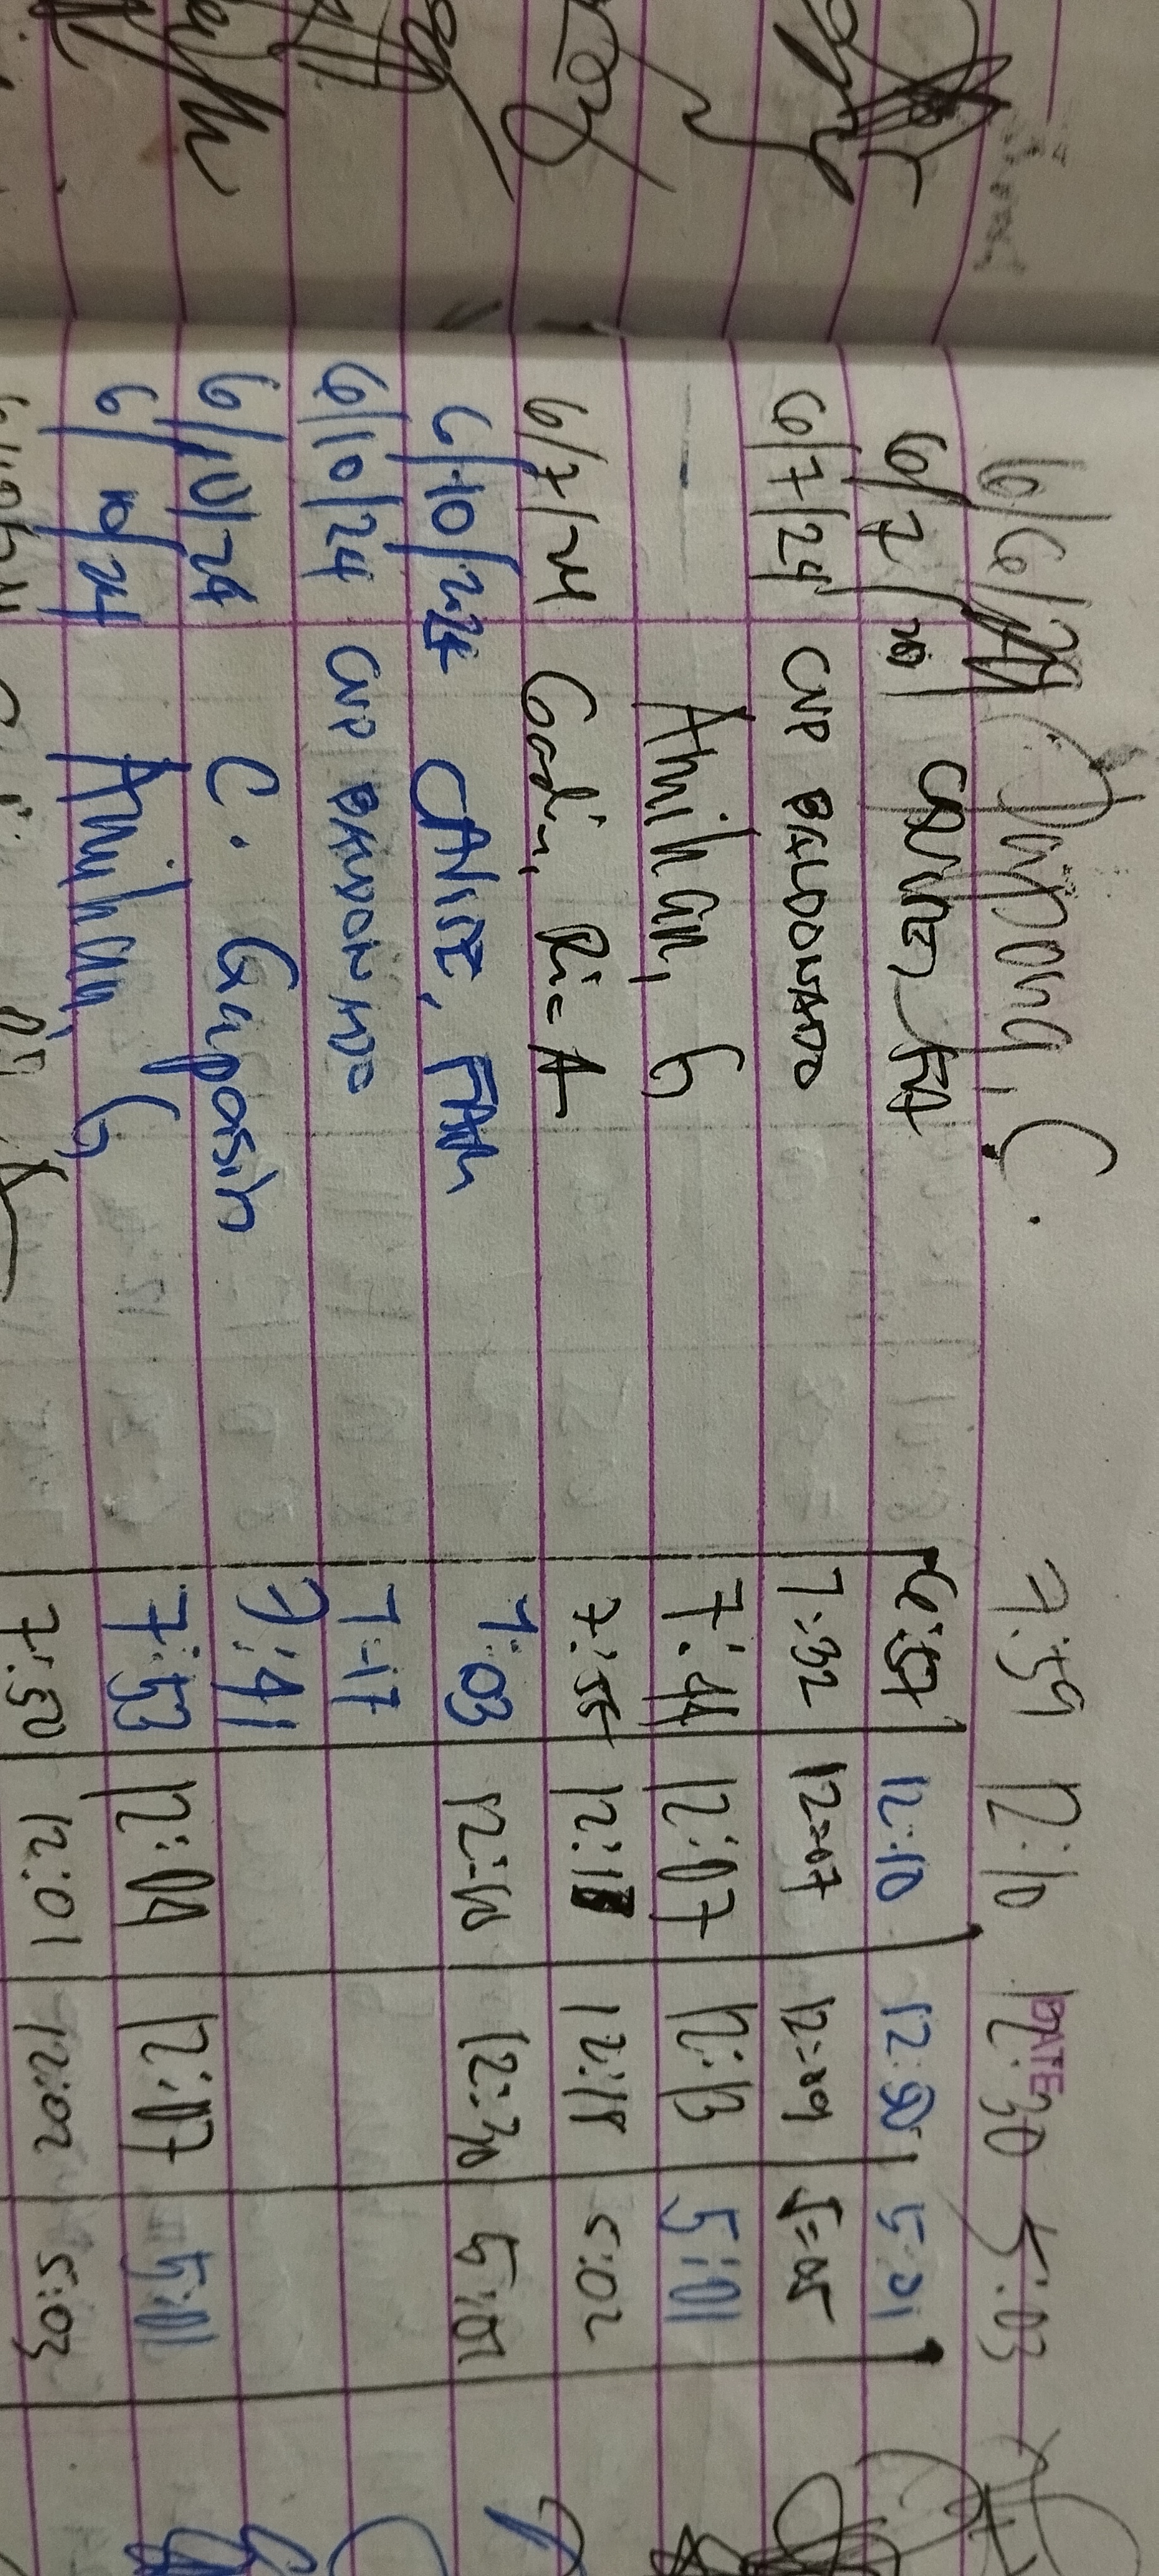 6/6/24 Dapona, C. 7:59 12:10 12:30 5:03
DATE
6/7/ 6:57 12:10 12:50 5:01
6/7/24 CNP BALDONADO 7:32 12:07 12:09 5:05
— Amihan, G 7:44 12:07 12:13 5:01
6/7/24 Gadin, Ri-A 7:55 12:11 12:18 5:02
6/10/2024 CAÑETE, FAM 7:03 12:10 12:30 5:01
6/10/24 CNP BALDONADO 7:17
6/10/24 C. Gapasin 7:41
6/10/24 Amihan, G 7:53 12:04 12:07 5:01
7:50 12:01 12:02 5:03